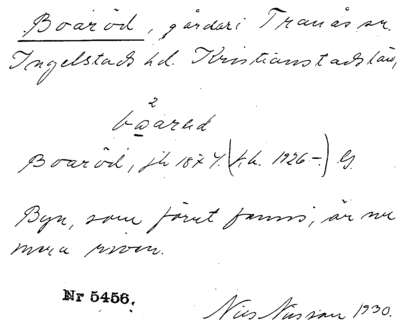 Boaröd, gårdar i Tranås sn.
Ingelstads hd. Kristianstads län,
2
boared
Boaröd, jb 1874. (j.b. 1926-) G.
Byn, som förut fanns, är nu
mera riven.
Nr 5456.
Nils Nilsson 1930.